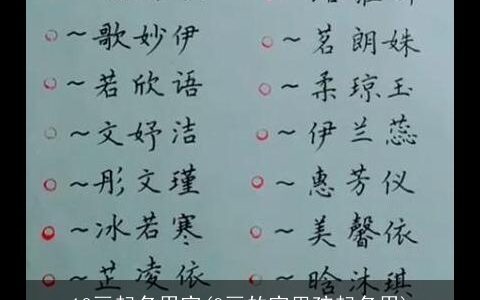 ~歌妙伊 ~茗朗姝
~若欣语 ~柔琼玉
~文妤洁 ~伊兰蕊
~彤文瑾 ~惠芳仪
~冰若寒 ~美馨依
~芷凌依 ~晗沐琪